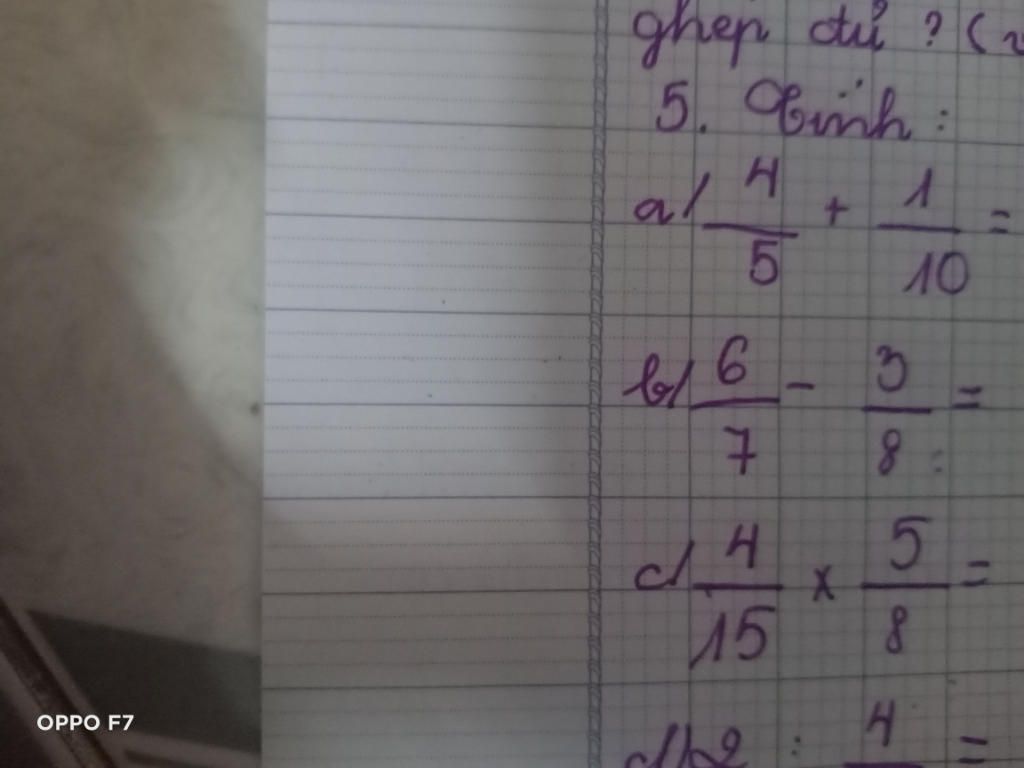 ghép đủ ? (
5. Tính :
a/ 4/5 + 1/10 =
b/ 6/7 - 3/8 =
c/ 4/15 x 5/8 =
d/ 2 : 4 =
OPPO F7